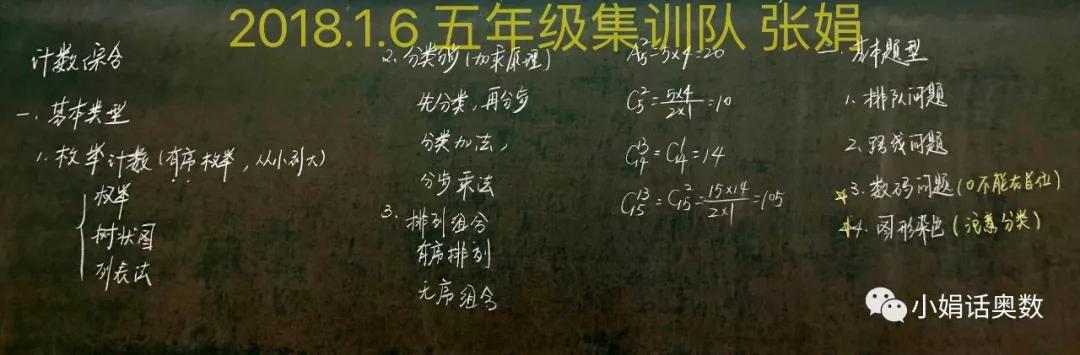 2018.1.6 五年级集训队 张娟
计数综合
一、基本类型
1、枚举计数(有序枚举,从小到大)
枚举
树状图
列表法
2、分类分步(加乘原理)
先分类,再分步
分类加法,
分步乘法
3、排列组合
有序排列
无序组合
A₅²=5×4=20
C₅²=5×4/2×1=10
C₁₄¹³=C₁₄¹=14
C₁₅¹³=C₁₅²=15×14/2×1=105
一、基本题型
1、排队问题
2、路线问题
3、数码问题(0不能在首位)
4、图形染色(注意分类)
小娟话奥数